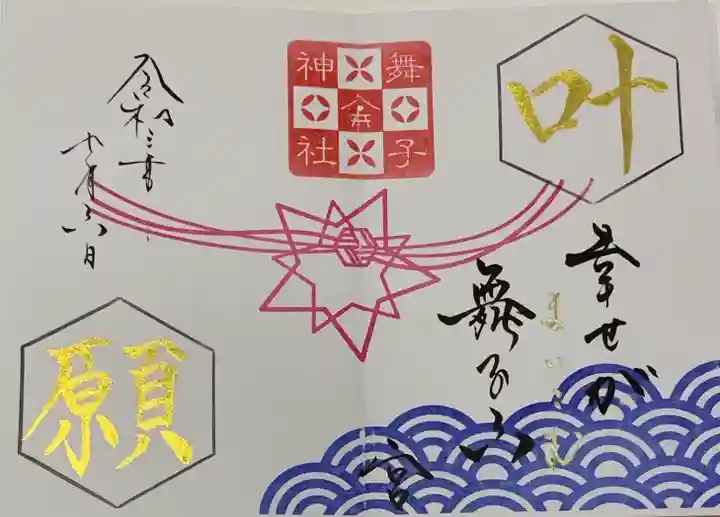 叶
幸せが
まいこむ
舞子六
宮
舞子
神社
令和三年
月六日
願